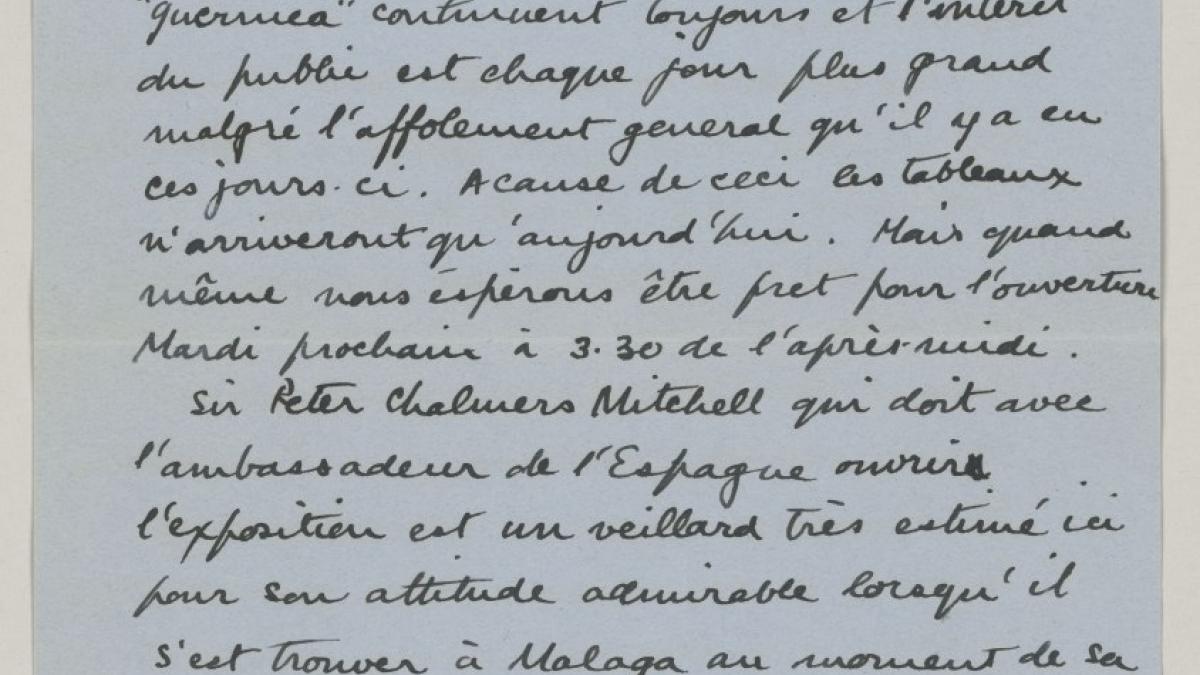 "guernica" continuent toujours et l'intéret
du public est chaque jour plus grand
malgré l'affolement general qu'il y a eu
ces jours-ci. A cause de ceci les tableaux
n'arriveront qu'aujourd'hui. Mais quand
même nous éspérons être pret pour l'ouverture
Mardi prochain à 3.30 de l'après-midi.
Sir Peter Chalmers Mitchell qui doit avec
l'ambassadeur de l'Espagne ouvrir
l'exposition est un veillard très estimé ici
pour son attitude admirable lorsqu'il
s'est trouver à Malaga au moment de sa